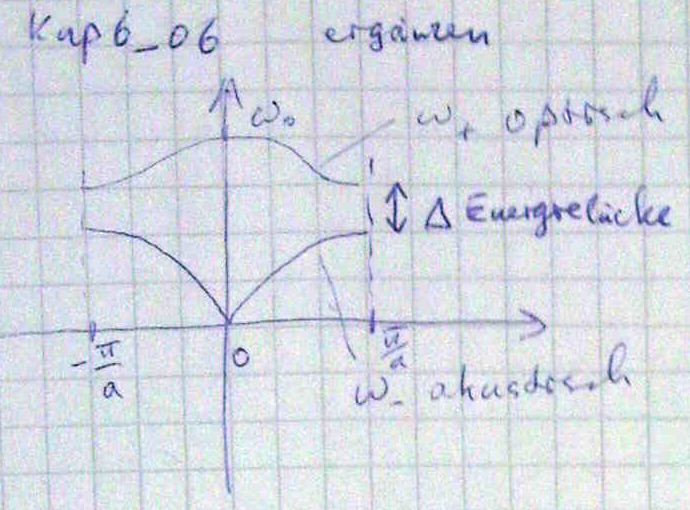 Kap6_06 ergänzen
ω₀
ω₊ optisch
Δ Energielücke
-π/a
0
π/a
ω₋ akustisch